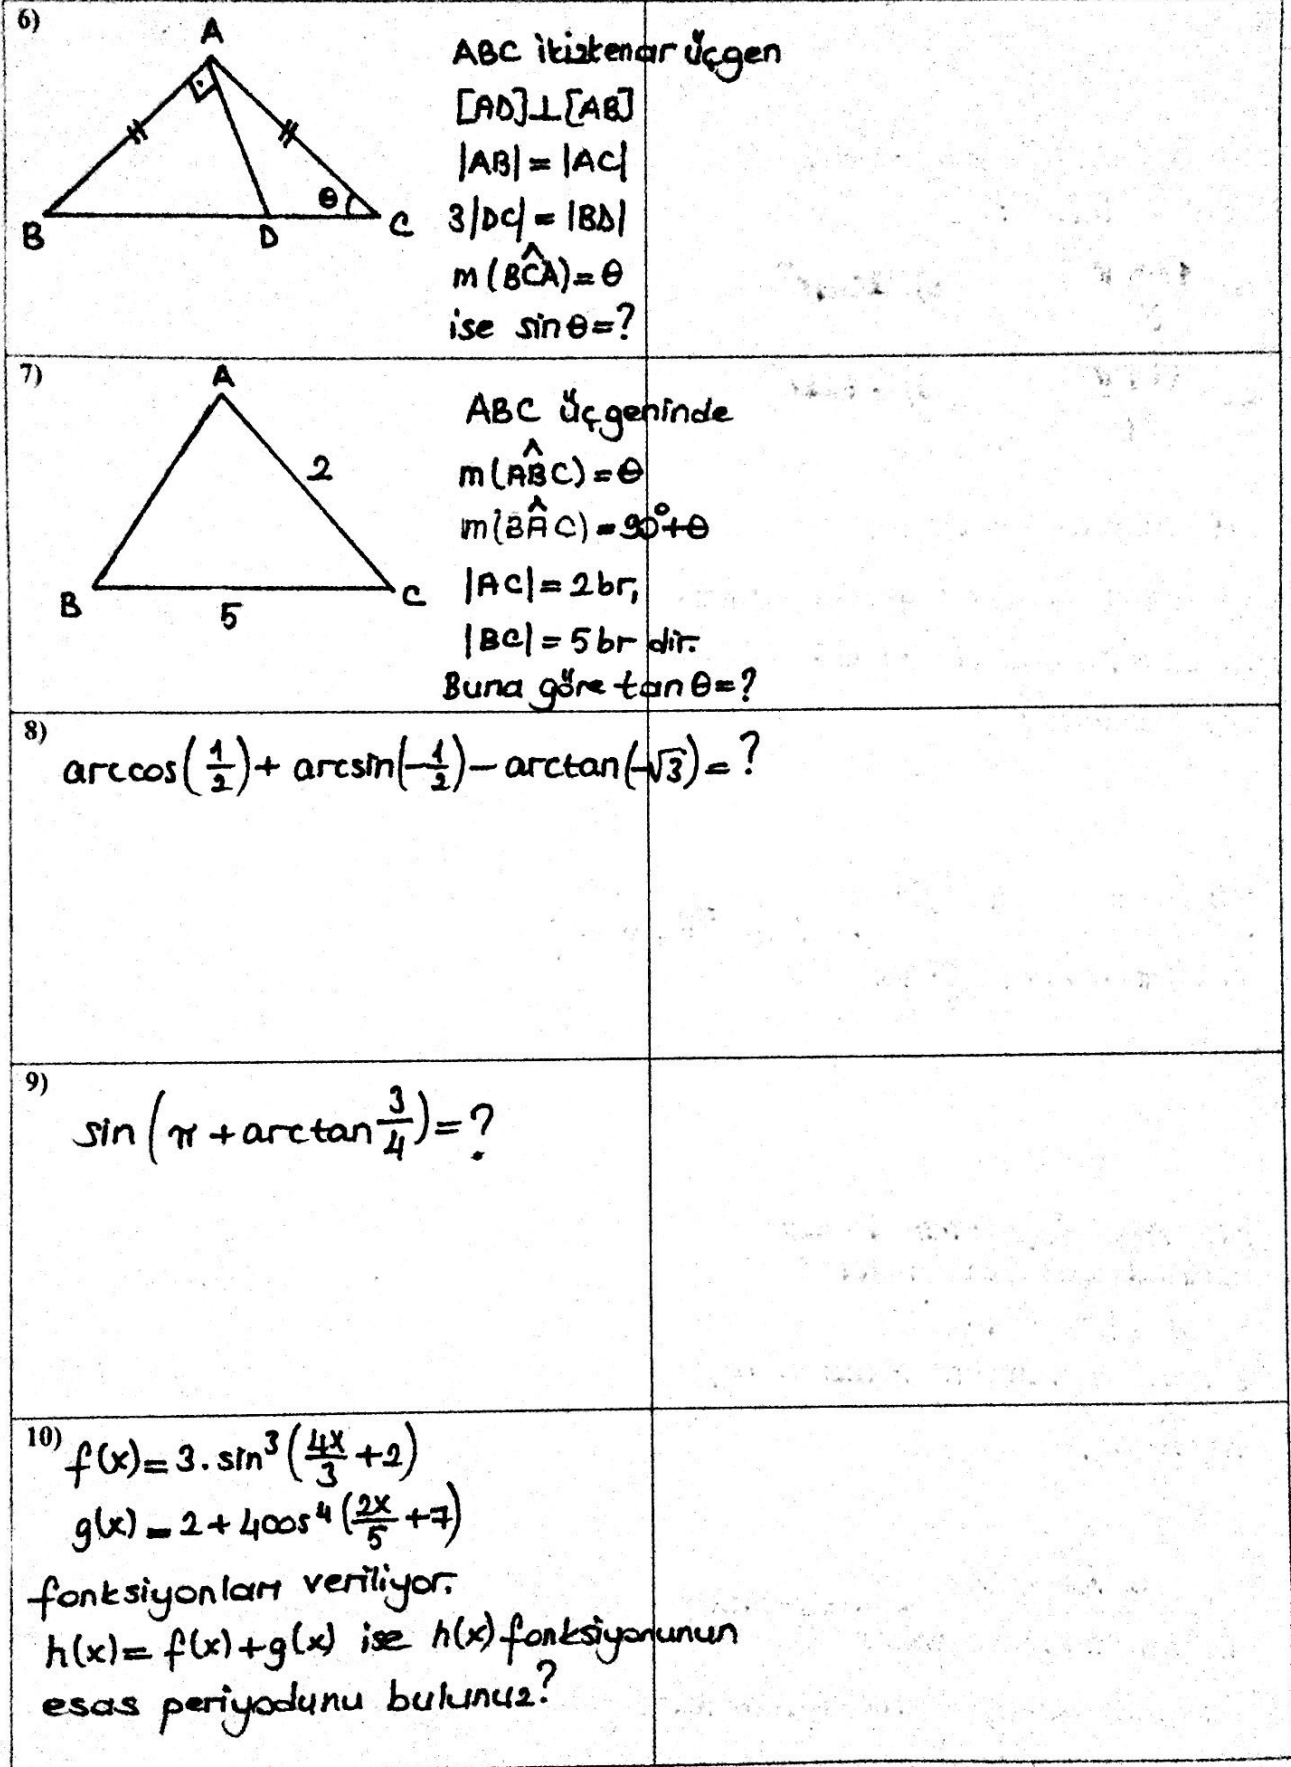 6)
A
B
D
C
θ
ABC ikizkenar üçgen
[AD]⊥[AB]
|AB| = |AC|
3|DC| = |BD|
m(BĈA) = θ
ise sinθ=?
7)
A
2
B
5
C
ABC üçgeninde
m(AB̂C) = θ
m(BÂC) = 90°+θ
|AC| = 2br,
|BC| = 5br dir.
Buna göre tanθ=?
8)
arccos(1/2) + arcsin(-1/2) - arctan(-√3) = ?
9)
sin(π + arctan 3/4) = ?
10) f(x) = 3. sin³(4x/3 + 2)
g(x) = 2 + 4cos⁴(2x/5 + 7)
fonksiyonları veriliyor.
h(x) = f(x) + g(x) ise h(x) fonksiyonunun
esas periyodunu bulunuz?